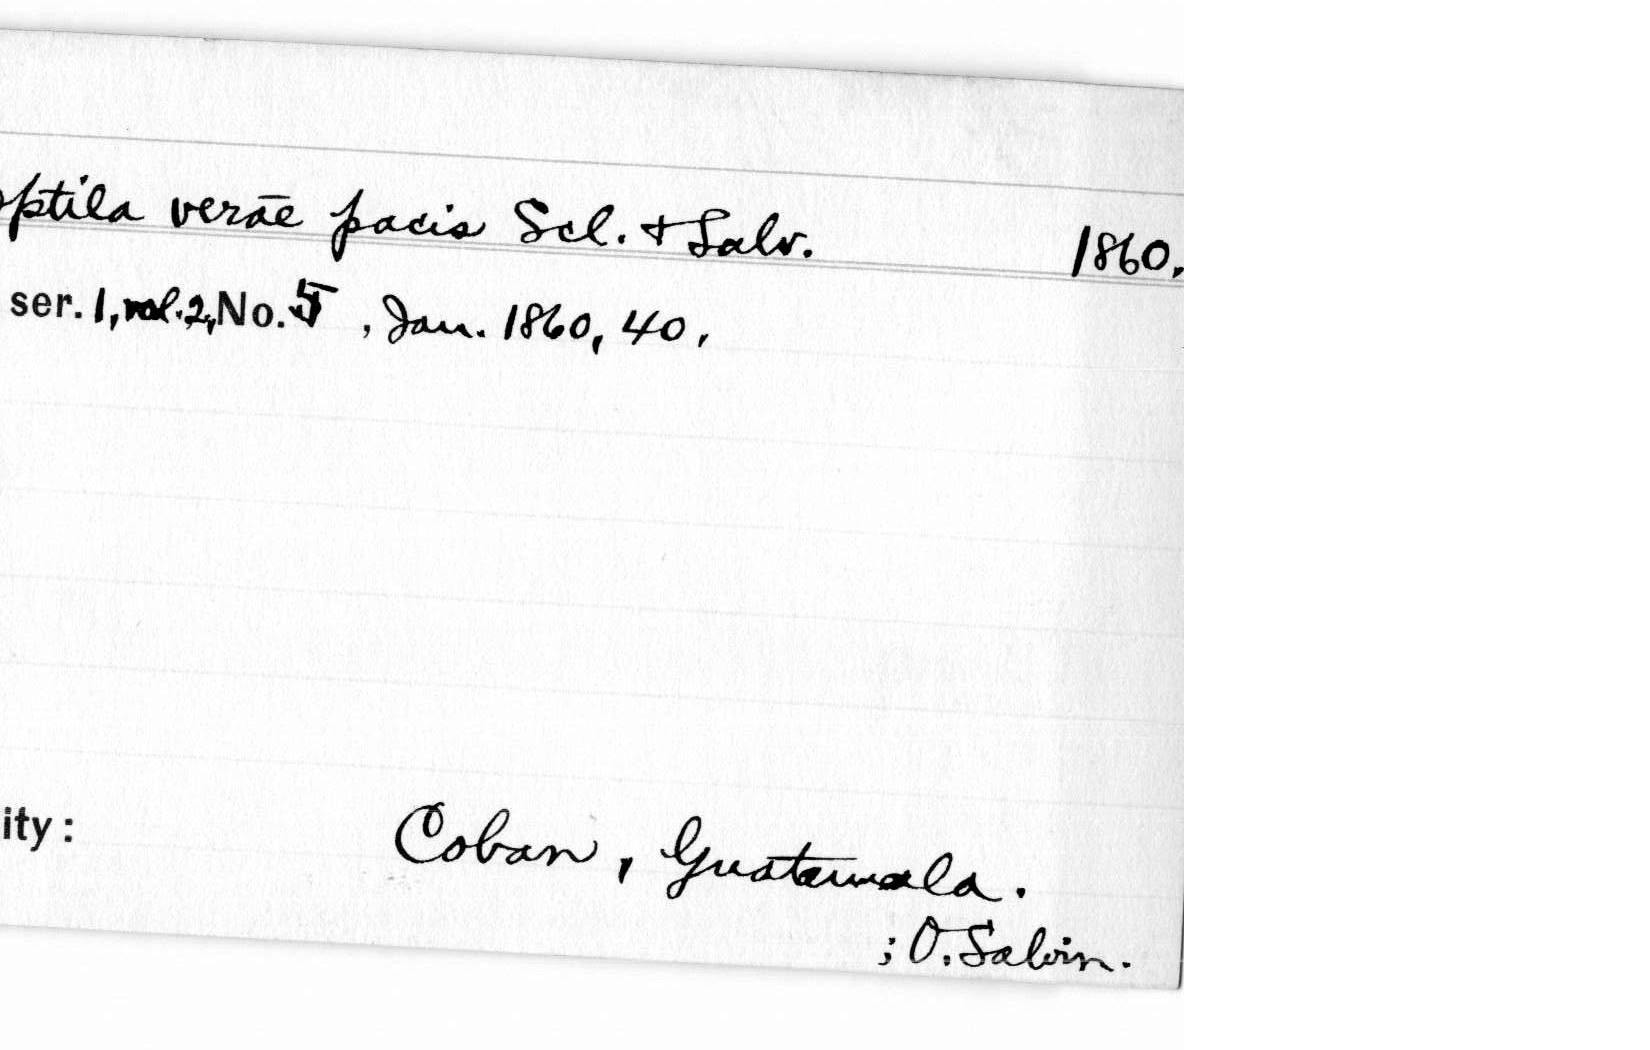 optila verāe pacis Scl. + Salv. 1860.
ser. 1, vol. 2, No. 5, Jan. 1860, 40.
ity: Coban, Guatemala.
; O. Salvin.